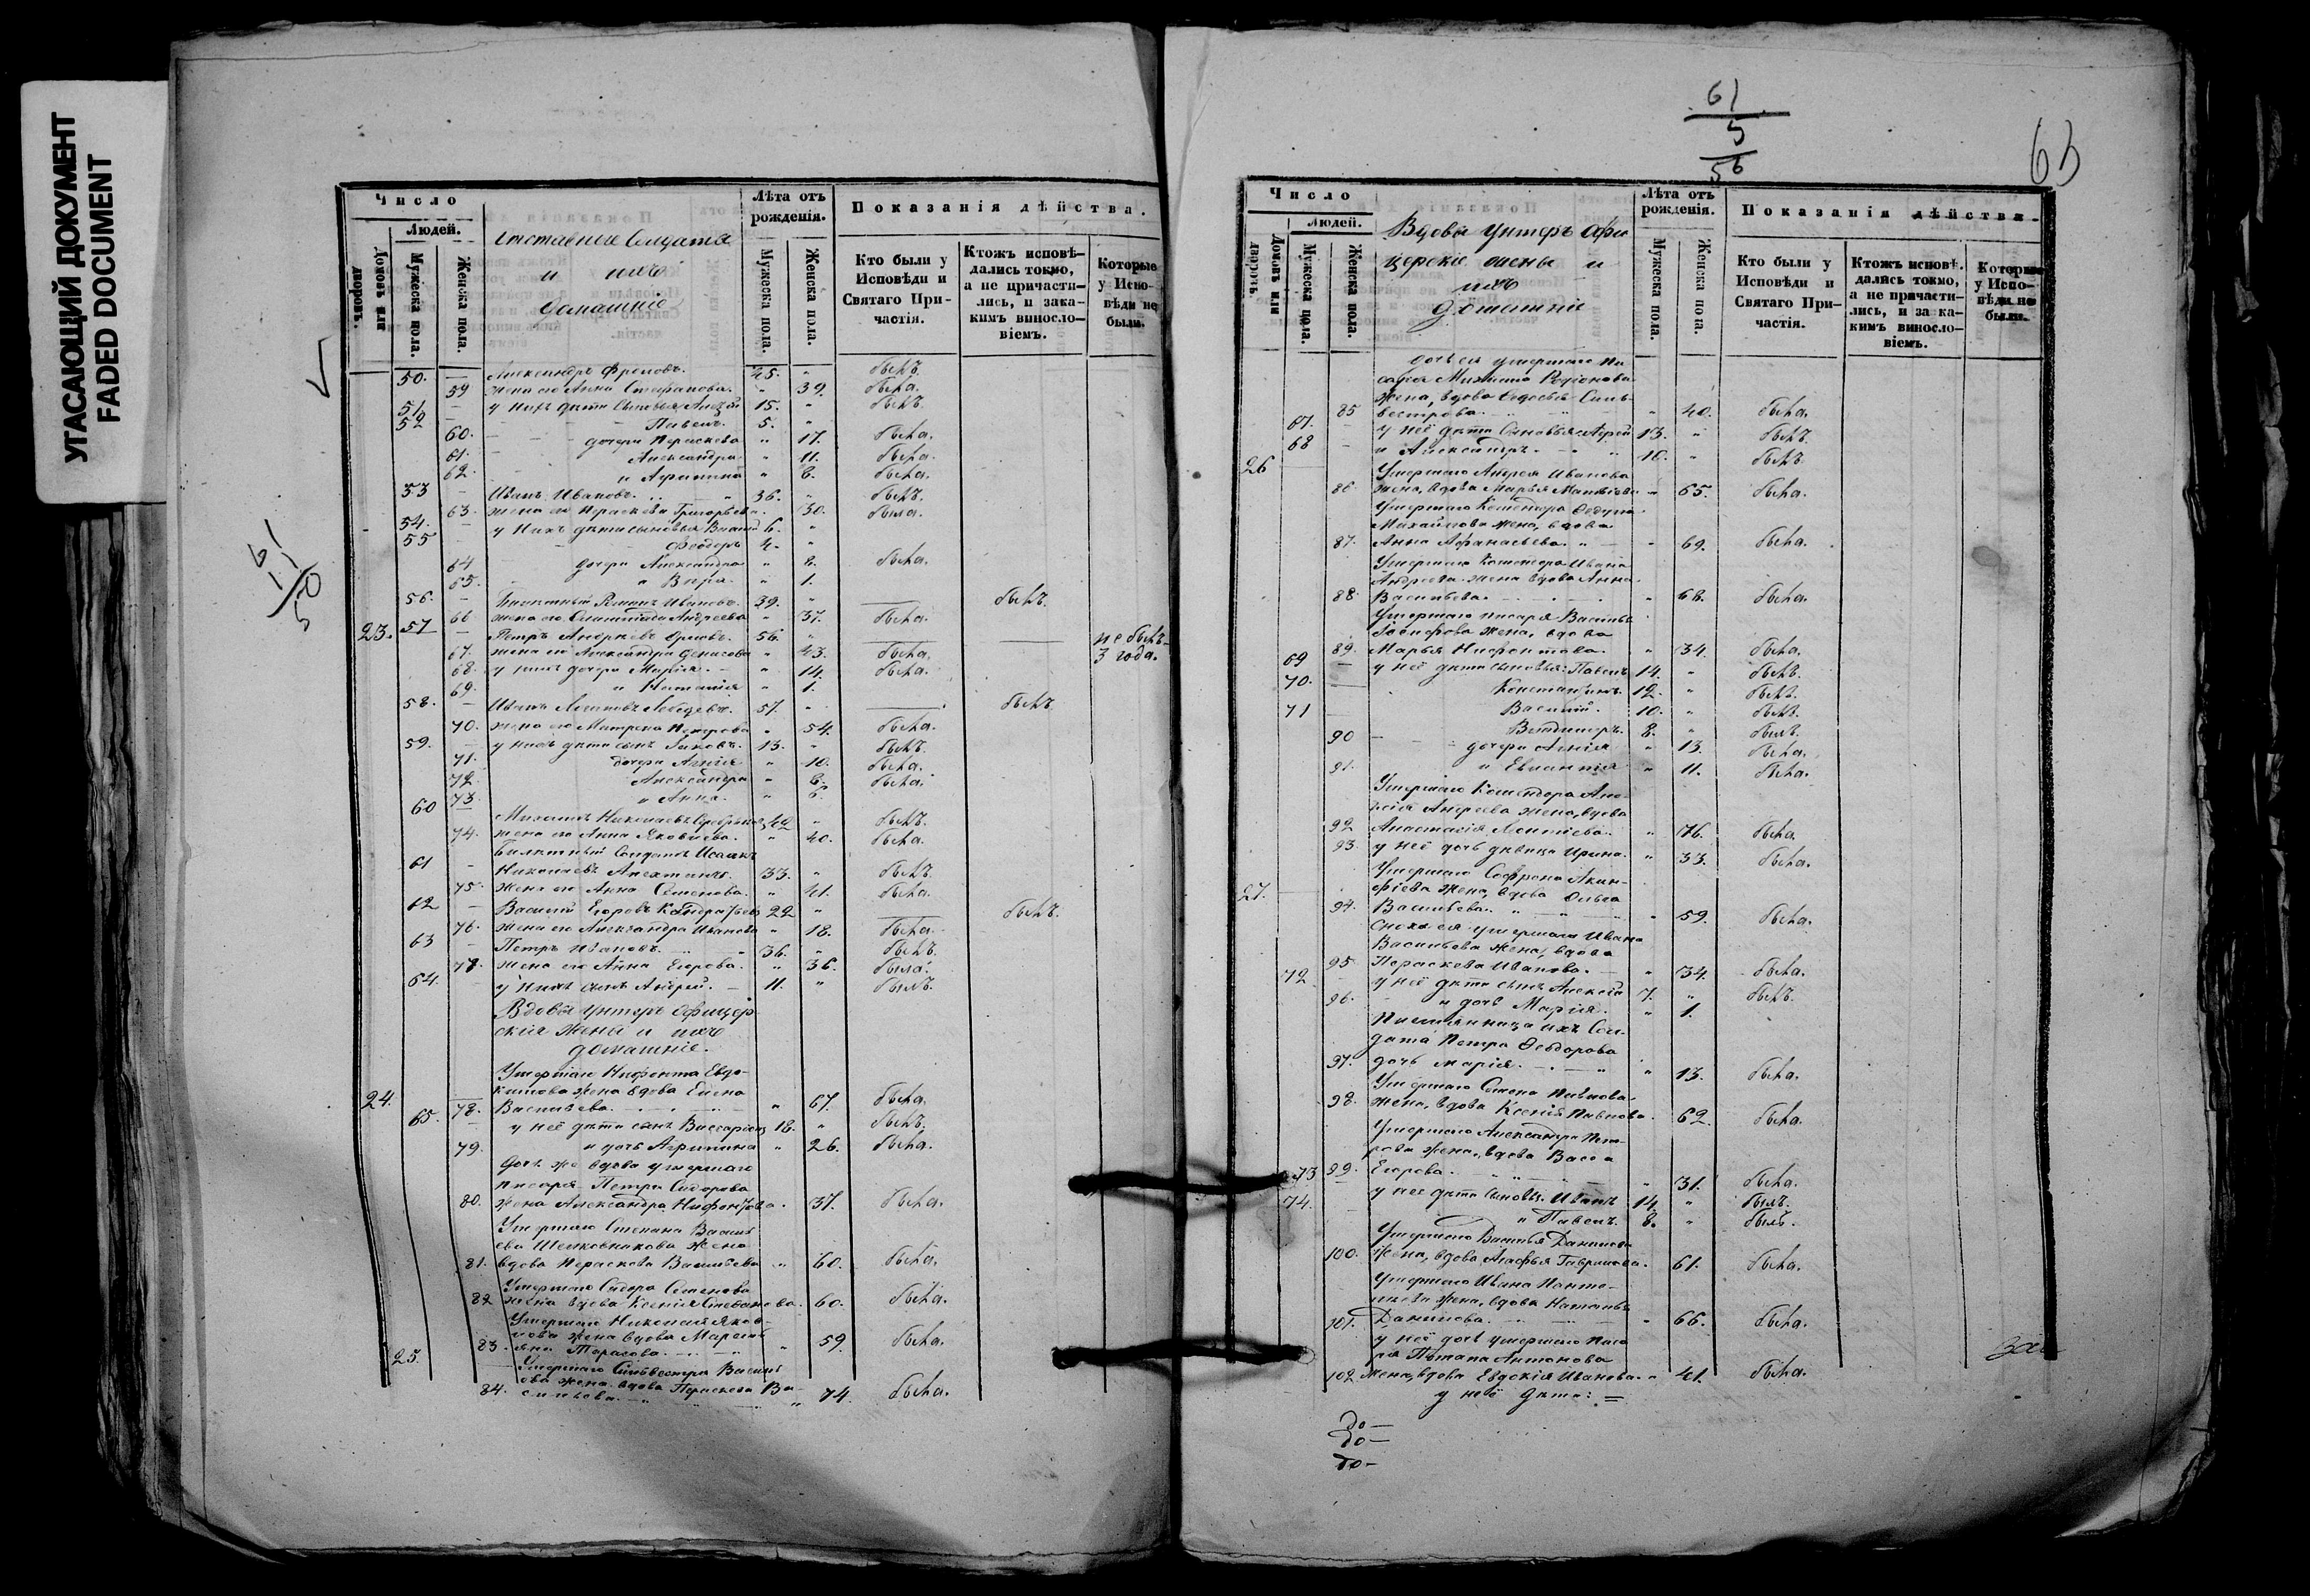 УГАСАЮЩИЙ ДОКУМЕНТ
FADED DOCUMENT
61
11
50
Число
Людей.
Домовъ или дворовъ.
Мужеска пола.
Женска пола.
солдаты
и ихъ
домашніе
Лѣта отъ рожденія.
Мужеска пола.
Женска пола.
Показанія дѣйства.
Кто были у Исповѣди и Святаго Причастія.
Ктожъ исповѣдались токмо, а не причастились, и за какимъ винословіемъ.
Которые у Исповѣди не были.
50. — Александръ Фроловъ. 45. " былъ.
59 жена его Анна Стефанова. " 39. была.
51 — у нихъ дѣти сыновья: 15. " былъ.
52 — Павелъ. 5. "
60. — дочери Параскева " 17. была.
61. Александра " 11. была.
62. и Агрипина " 8. была.
53 — Иванъ Ивановъ. 36. " былъ.
63. жена его Параскева Григорьева. 30. была.
54. — у нихъ дѣти сыновья 6. "
55 Феодоръ 4. "
64 дочери Александра " 8. была.
65. и Вѣра. " 1.
56. — Романъ Ивановъ. 39. " — былъ.
66 жена его Андреева " 37. была.
23. 57 — Петръ Андреевъ Орловъ. 56. " — — не былъ 3 года.
67. жена его Александра Денисова " 43. была.
68. у нихъ дочери Марія. — " 14. была.
69. и Наталія " 1.
58. — Иванъ Лебедевъ. 57. " — былъ.
70. жена его Матрена Петрова " 54. была.
59. — у нихъ дѣти сынъ Яковъ. 13. " былъ.
71. дочери Агнія " 10. была.
72 Александра " 8. была.
73. и Анна. " 6.
60 Михаилъ Николаевъ 42 " былъ.
74. жена его Анна Яковлева. " 40. была.
Билетный Солдатъ Исаакъ
61 — Николаевъ 33. " былъ.
75. жена его Анна Семенова. " 41. была.
62 — Василій Егоровъ Кондратьевъ 22 " — былъ.
76. жена его Александра Иванова " 18. была.
63 — Петръ Ивановъ. 36. " былъ.
77. жена его Анна Егорова. " 36. была.
64. у нихъ сынъ Андрей. — 11. " былъ.
Вдовы унтеръ офицер
скія жены и ихъ
домашніе.
Умершаго Нифонта Евдо-
кимова жена вдова Елена
24. 78. Васильева. " 67. была.
65. — у неё дѣти сынъ Виссаріонъ 18. " былъ.
79. и дочь Агрипина " 26. была.
Дочь же вдова умершаго
писаря Петра Сидорова
80. жена Александра Нифонтова. 37. была.
Умершаго Степана Василь
ева Шелковникова жена
81. вдова Параскева Васильева " 60. была.
Умершаго Сидора Семенова
82 жена вдова Ксенія Степанова. 60. была.
Умершаго Николая Яков-
лева жена вдова
83. Тарасова. " 59. была.
25. Умершаго Сильвестра Василь
ева жена вдова Параскева Ва-
84. сильева. " 74. была.
61
5
56
63
Число
Людей.
Домовъ или дворовъ.
Мужеска пола.
Женска пола.
Вдовы унтеръ офи
церскіе жены и
ихъ
домашніе
Лѣта отъ рожденія.
Мужеска пола.
Женска пола.
Показанія дѣйства.
Кто были у Исповѣди и Святаго Причастія.
Ктожъ исповѣдались токмо, а не причастились, и за какимъ винословіемъ.
Которые у Исповѣди не были.
дочь ея умершаго пи
саря Михаила Родіонова
жена, вдова Ѳедосья Силь-
85 вестрова. " 40. была.
67. — у неё дѣти сыновья: 13. " былъ.
68 — и Александръ. 10. " былъ.
26 Умершаго Андрея Иванова
86. жена, вдова Марья Матвѣева " 65. была.
Умершаго Комендора
Михайлова жена, вдова
87. Анна Афанасьева. " 69. была.
Умершаго Комендора Ивана
Андреева жена вдова Анна
88. Васильева. " 68. была.
Умершаго писаря Василья
жена, вдова
89. Марья Нифонтова. " 34. была.
69 — у неё дѣти сыновья: Павелъ 14. " былъ.
70. — Константинъ. 12. " былъ.
71 Василій. 10. " былъ.
Владиміръ. 8. " былъ.
90 — дочери Агнія " 13. была.
91. и Евлампія " 11. была.
Умершаго Комендора Але-
ксія Андреева жена, вдова
92 Анастасія Леонтіева. " 76. была.
93. у неё дочь дѣвица Ирина. " 33. была.
Умершаго Софрона Акин-
27. фіева жена, вдова Ольга
94. Васильева. " 59. была.
Сноха ея умершаго Ивана
Васильева жена, вдова
95. Параскева Иванова. " 34. была.
72 — у неё дѣти сынъ Алексѣй 7. " былъ.
96. и дочь Марія. " 1.
Племянница ихъ Сол-
дата Петра Ѳеодорова
97. дочь Марія. " 13. была.
Умершаго Семена Павлова
98. жена, вдова Ксенія Павлова. 62. была.
Умершаго Александра Пет-
рова жена, вдова Васса
99. Егорова. " 31. была.
73 у неё дѣти сыновья: Иванъ 14 " былъ.
74. " Павелъ. 8. " былъ.
Умершаго Василья Данилова
100. жена, вдова Агафья Гаврилова. 61. была.
Умершаго Ивана Панте-
жена, вдова Наталья
101. Данилова. " 66. была.
у неё дочь умершаго писа
ря Потапа Антонова
102 жена, вдова Евдокія Иванова. " 41. была.
у неё дѣти: =